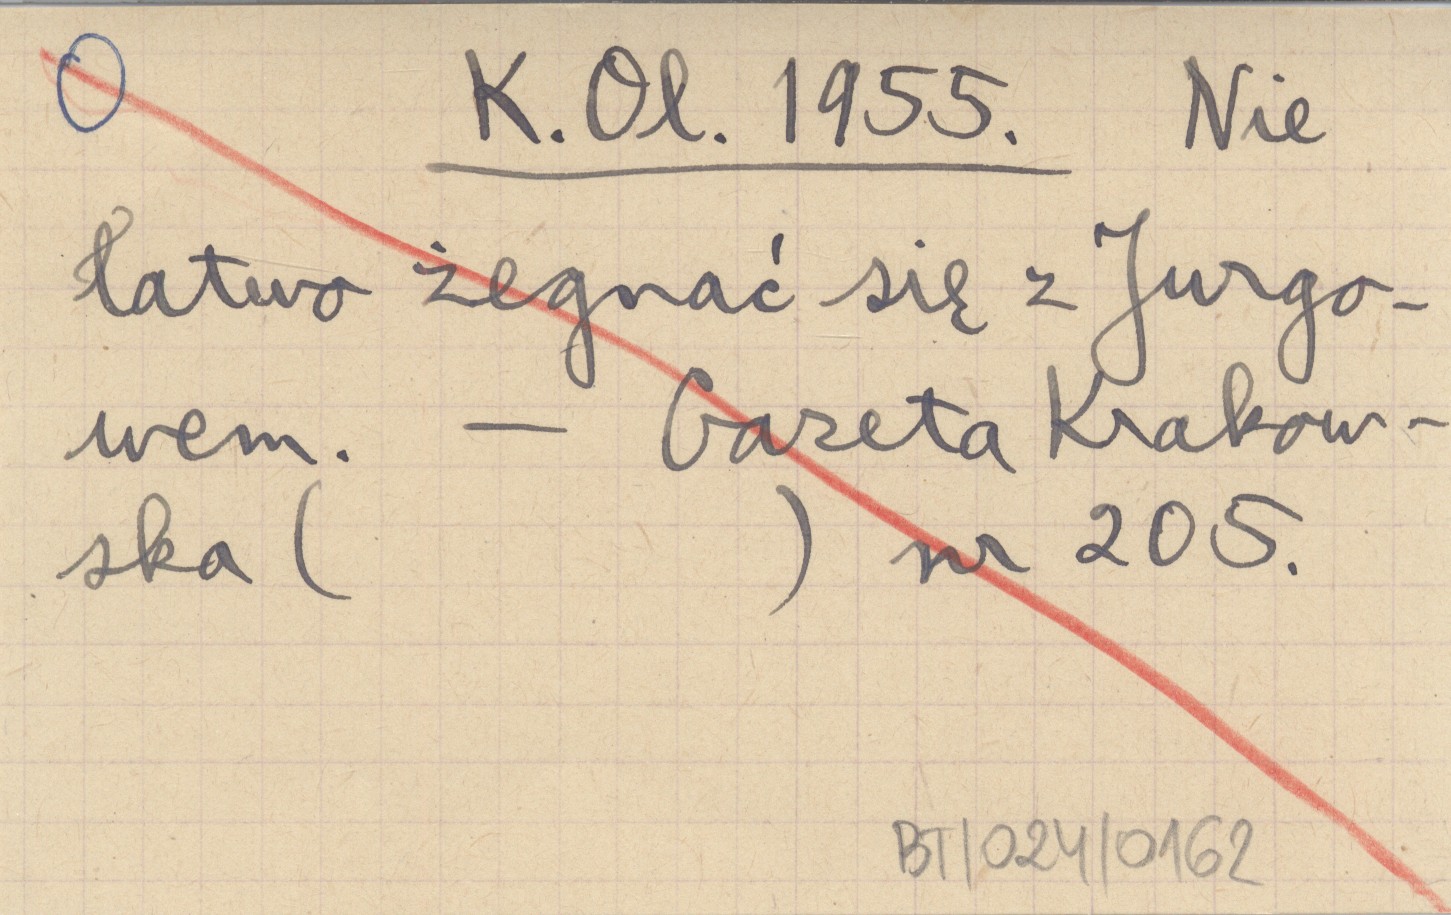 K. Ol. 1955. Nie
łatwo żegnać się z Jurgo-
wem. — Gazeta Krakow-
ska ( ) nr 205.
BT/024/0162